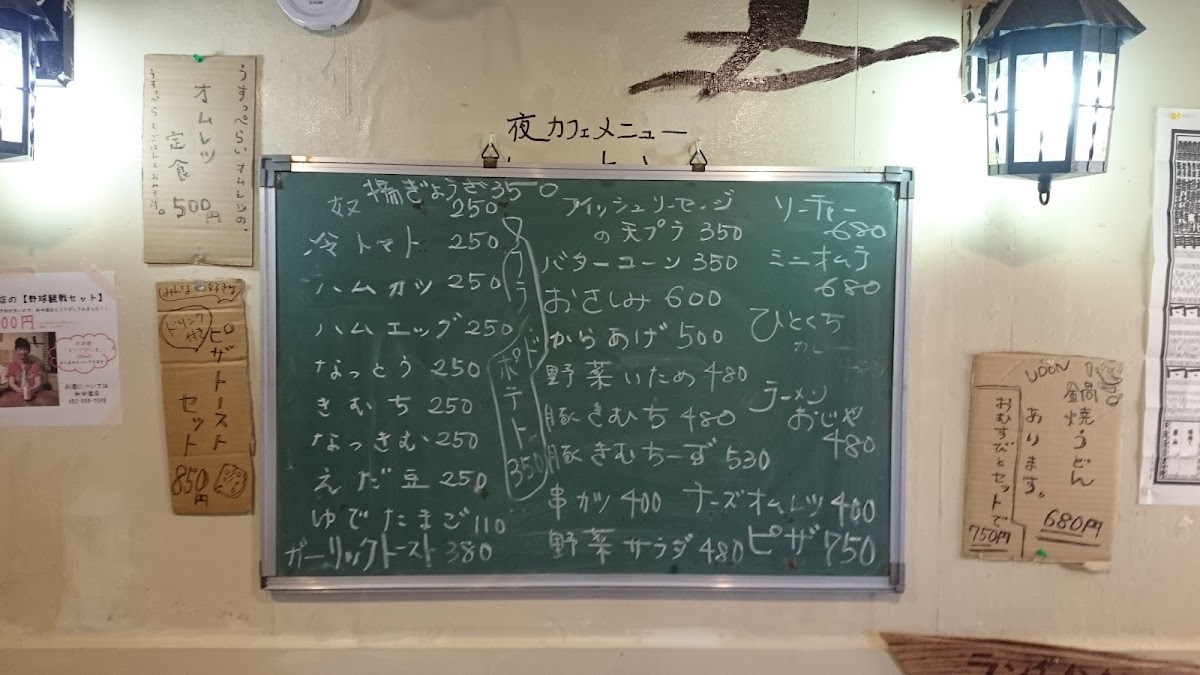 うすっぺらい オムレツの。
オムレツ
定食
500円
みんな大好きな
ドリンク付き
ピザトースト
セット
850円
店の【野球観戦セット】
00円
お酒については
夜カフェメニュー
揚ぎょうざ350
奴 250
冷トマト 250
ハムカツ 250
ハムエッグ 250
なっとう 250
きむち 250
なっきむ 250
えだ豆 250
ゆでたまご 110
ガーリックトースト 380
フライドポテト 350
フィッシュソーセージ
の天プラ 350
バターコーン 350
おさしみ 600
からあげ 500
野菜いため 480
豚きむち 480
豚きむちーず 530
串カツ 400
野菜サラダ 480
ソーキー
680
ミニオムラ
680
ひとくち
カレー
ラーメン
おじや
480
チーズオムレツ 400
ピザ 750
UDON
鍋焼うどん
あります。
680円
おむすびとセットで
750円